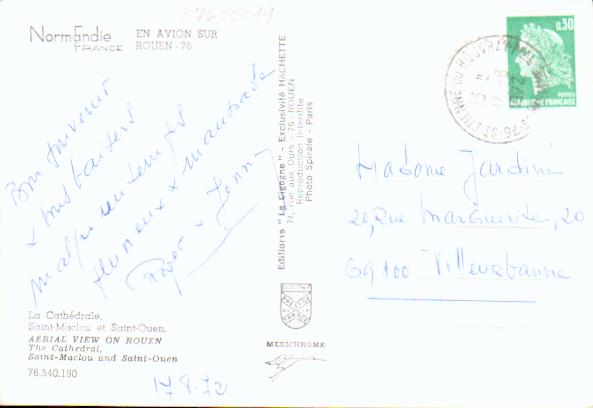 07600019
Normandie
FRANCE
EN AVION SUR
ROUEN - 76
Bon souvenir
x
malgré un temps
x maussade
Roger x
La Cathédrale,
Saint-Maclou et Saint-Ouen.
AERIAL VIEW ON ROUEN
The Cathedral,
Saint-Maclou and Saint-Ouen
76.540.190
17.8.72
Editions "La Cigogne" - Exclusivité HACHETTE
74, rue aux Ours - 76 - ROUEN
Reproduction interdite
Photo Spirale - Paris
MEXICHROME
0,30
POSTES
REPUBLIQUE FRANÇAISE
76 ST ETIENNE DU ROUVRAY
Madame Jardiné
20, Rue Marguerite, 20
69100 Villeurbanne